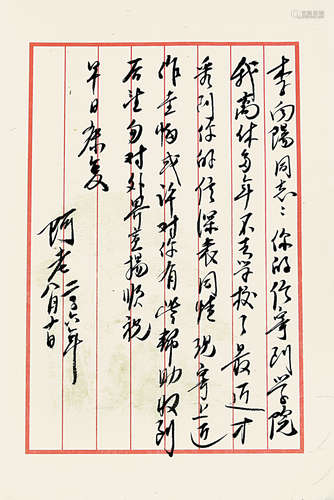 李向阳同志：你的信寄到学院
我离休多年不去学校了最近才
看到你的信深表同情现寄上近
作壹幅或许对你有些帮助收到
后望勿对外界宣扬顺祝
早日康复
阿老二〇〇六年
八月十日